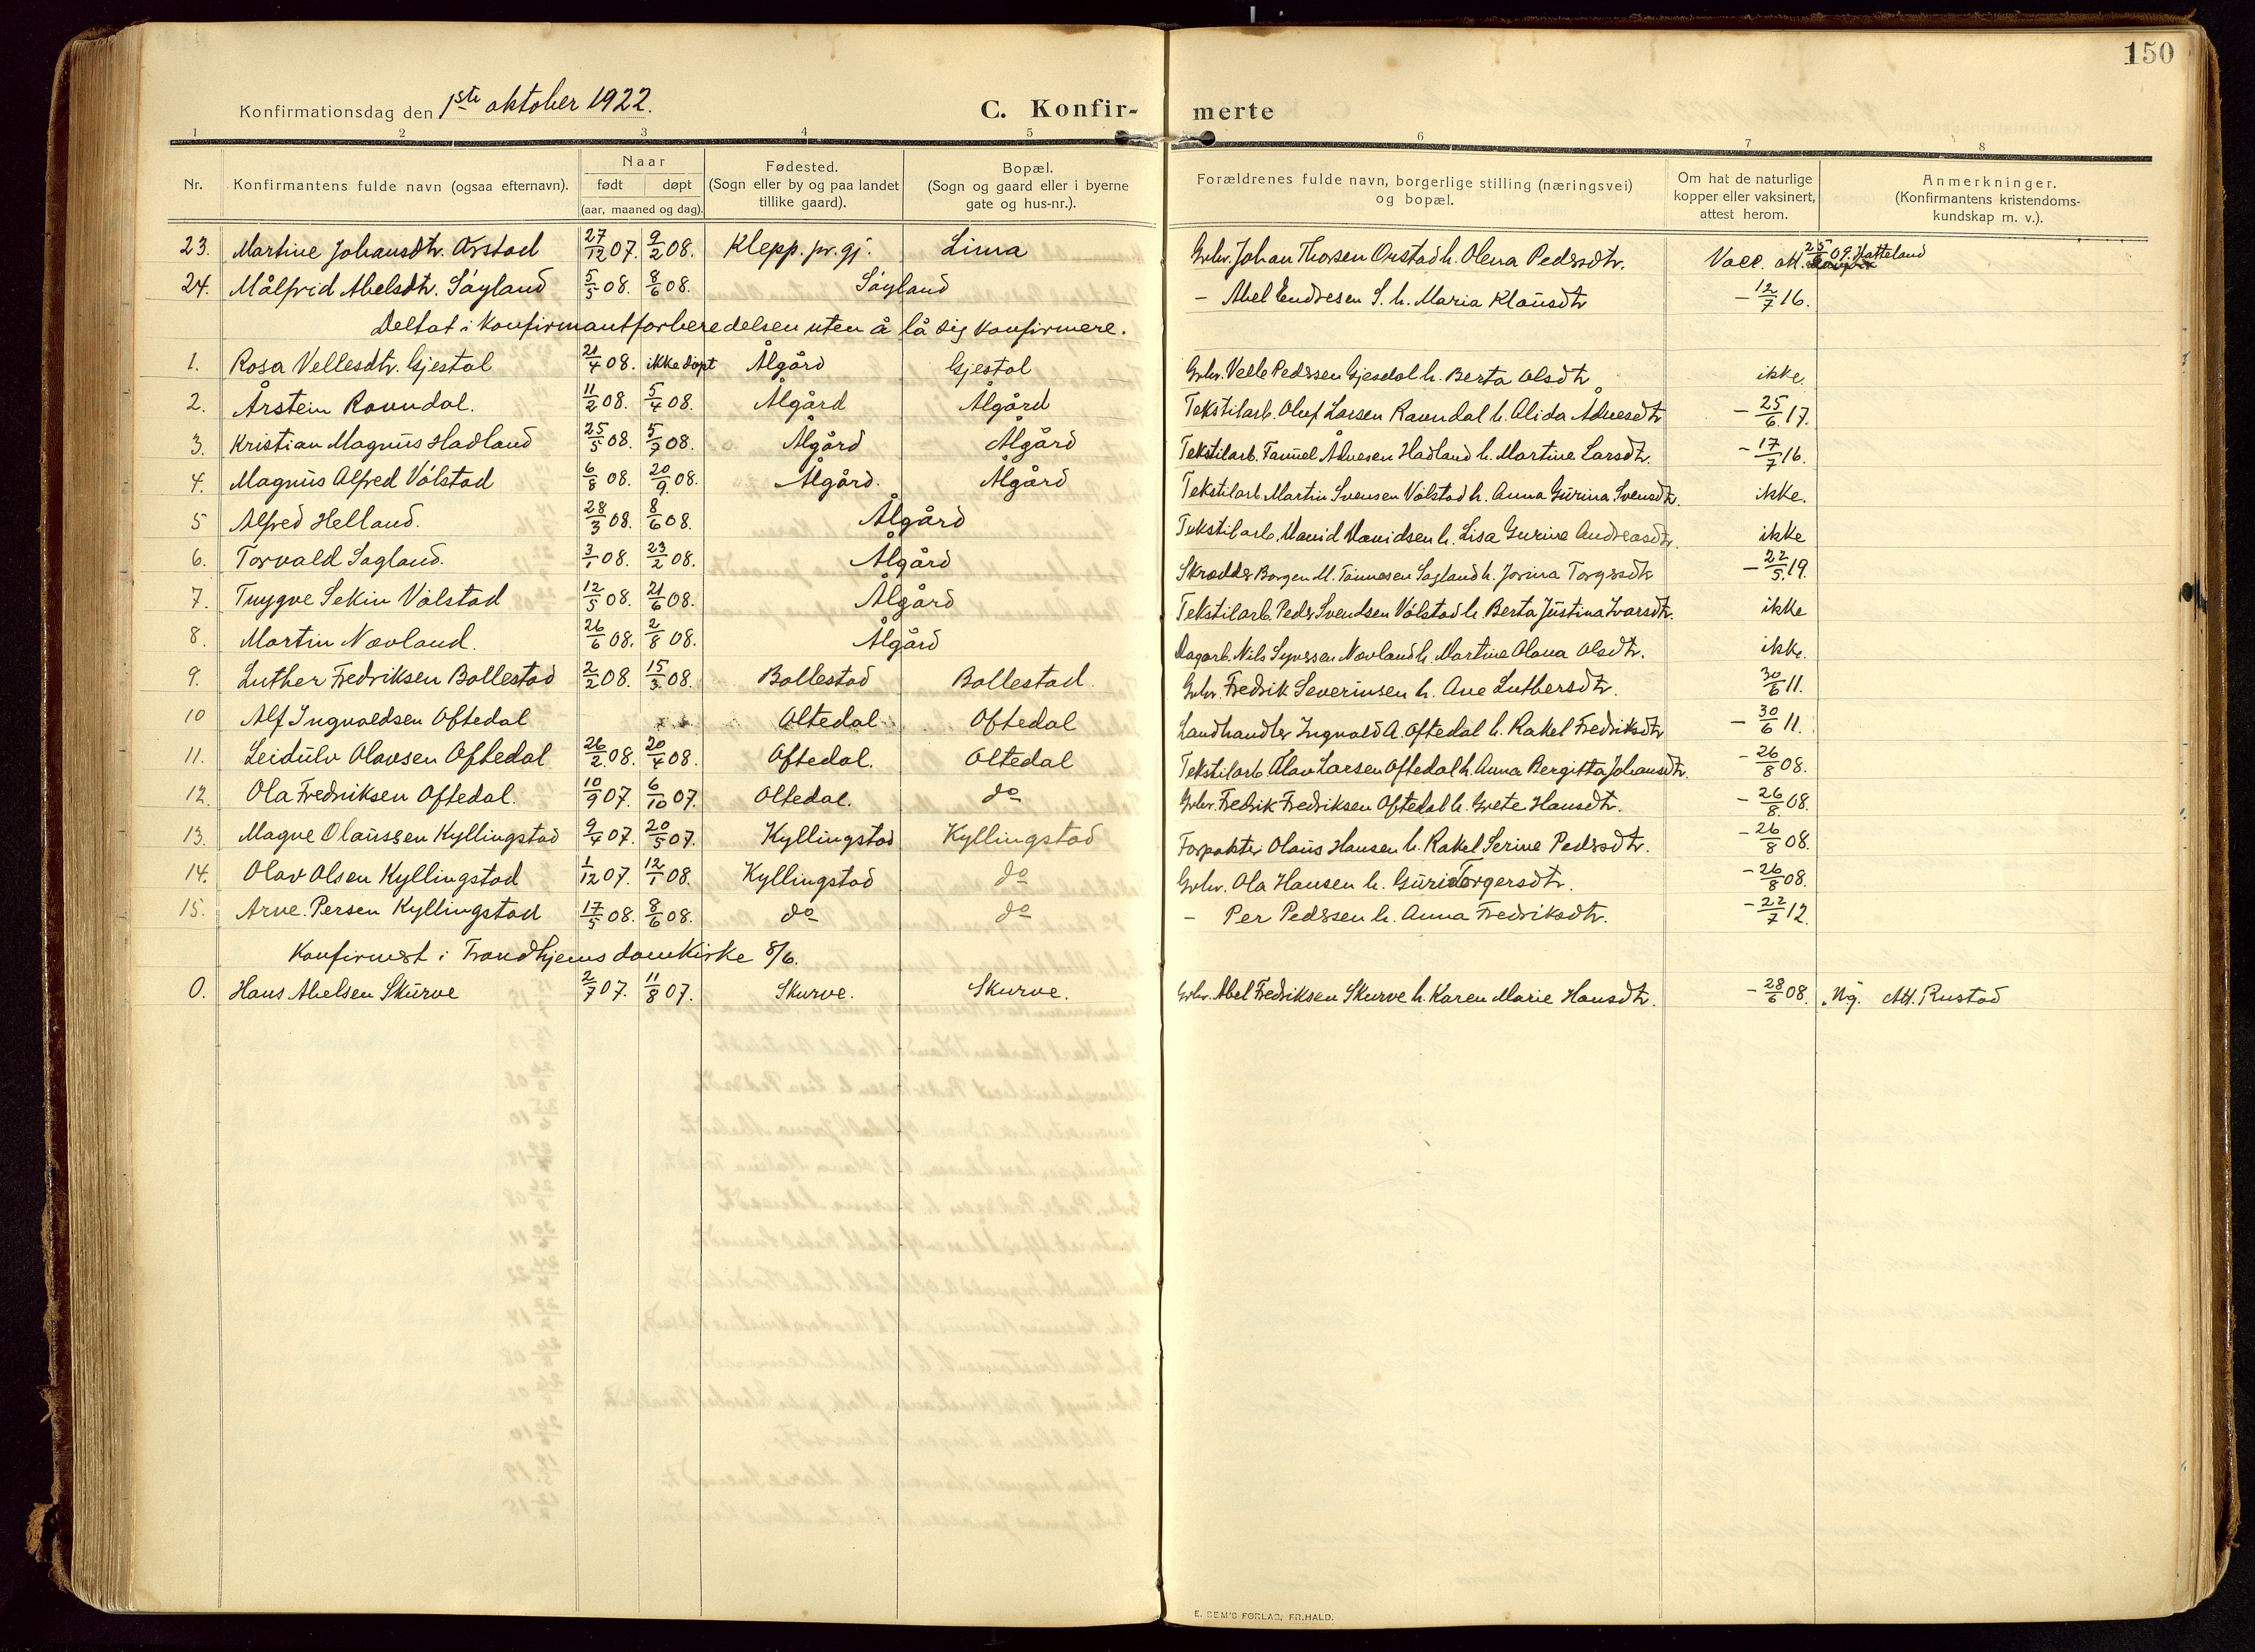 150
Konfirmationsdag den 1ste oktober 1922. C. Konfir- merte
1 2 3 4 5 6 7 8
Nr. Konfirmantens fulde navn (ogsaa efternavn). Naar født døpt (aar, maaned og dag). Fødested. (Sogn eller by og paa landet tillike gaard). Bopæl. (Sogn og gaard eller i byerne gate og hus-nr.). Forældrenes fulde navn, borgerlige stilling (næringsvei) og bopæl. Om hat de naturlige kopper eller vaksinert, attest herom. Anmerkninger. (Konfirmantens kristendoms- kundskap m. v.).
23. Martine Johansdtr. Orstad 27/12 07. 9/2 08. Klepp. pr. gj. Lima Grbr. Johan Thorsen Orstad h. Olena Pedersdtr. Vacc. att. 25/6 09. Hatteland
24. Målfrid Abelsdtr. Søyland 5/5 08. 8/6 08. Søyland – Abel Endresen S. h. Maria Klausdtr – 12/7 16.
Deltat i konfirmantforberedelsen uten å la sig konfirmere.
1. Rosa Vellesdtr. Gjestal 21/4 08. ikke døpt Ålgård Gjestal Grbr. Velle Pedersen Gjesdal h. Berta Olsdtr ikke.
2. Årstein Ravndal. 11/2 08. 5/4 08. Ålgård Ålgård Tekstilarb. Oluf Larsen Ravndal h. Alida Ådnesdtr – 25/6 17.
3. Kristian Magnus Hadland 25/5 08. 5/7 08. Ålgård Ålgård Tekstilarb. Fannuel Ådnesen Hadland h. Martine Larsdtr. – 17/7 16.
4. Magnus Alfred Vølstad 6/8 08. 20/9 08. Ålgård. Ålgård Tekstilarb Martin Svensen Vølstad h. Anna Gurina Svensdtr. ikke.
5 Alfred Helland. 28/3 08. 8/6 08. Ålgård Tekstilarb. David Davidsen h. Lisa Gurine Andreasdtr. ikke
6. Torvald Sagland. 3/1 08. 23/2 08. Ålgård Skrædder Borgen M. Tønnesen Sagland h. Jorina Torgersdtr – 22/5 19.
7. Trygve Sekin Vølstad 12/5 08. 21/6 08. Ålgård Tekstilarb. Peder Svendsen Vølstad h. Berta Justina Ivarsdtr. ikke
8. Martin Nævland. 26/6 08. 2/8 08. Ålgård Dagarb. Nils Syversen Nævland h. Martine Olava Olsdtr. ikke.
9. Luther Fredriksen Bollestad 2/2 08. 15/3 08. Bollestad Bollestad. Grbr. Fredrik Severinsen h. Ane Luthersdtr. 30/6 11.
10 Alf Ingvaldsen Oftedal Oltedal Oftedal Landhandler Ingvald A. Oftedal h. Rakel Fredriksdtr – 30/6 11.
11. Leidulv Olavsen Oftedal 26/2 08. 20/4 08. Oftedal. Oltedal Tekstilarb Olav Larsen Oftedal h. Anna Bergitta Johansdtr. – 26/8 08.
12. Ola Fredriksen Oftedal. 10/9 07. 6/10 07. Oltedal. do Grbr. Fredrik Fredriksen Oftedal h. Grete Hansdtr. – 26/8 08.
13. Magne Olaussen Kyllingstad 9/4 07. 20/5 07. Kyllingstad Kyllingstad Forpakter Olaus Hansen h. Rakel Serine Pedersdtr. – 26/8 08.
14. Olav Olsen Kyllingstad 1/12 07. 12/1 08. Kyllingstad do Grbr. Ola Hansen h. Guri Torgersdtr. – 26/8 08.
15. Arne Persen Kyllingstad 17/5 08. 8/6 08. do do – Per Pedersen h. Anna Fredriksdtr. – 22/7 12.
Konfirmert i Trondhjems domkirke 8/6.
0. Hans Abelsen Skurve 2/7 07. 11/8 07. Skurve. Skurve. Grbr. Abel Fredriksen Skurve h. Karen Marie Hansdtr. – 28/6 08. Mg. Att. Rustad
E. SEM'S FORLAG, FR.HALD.